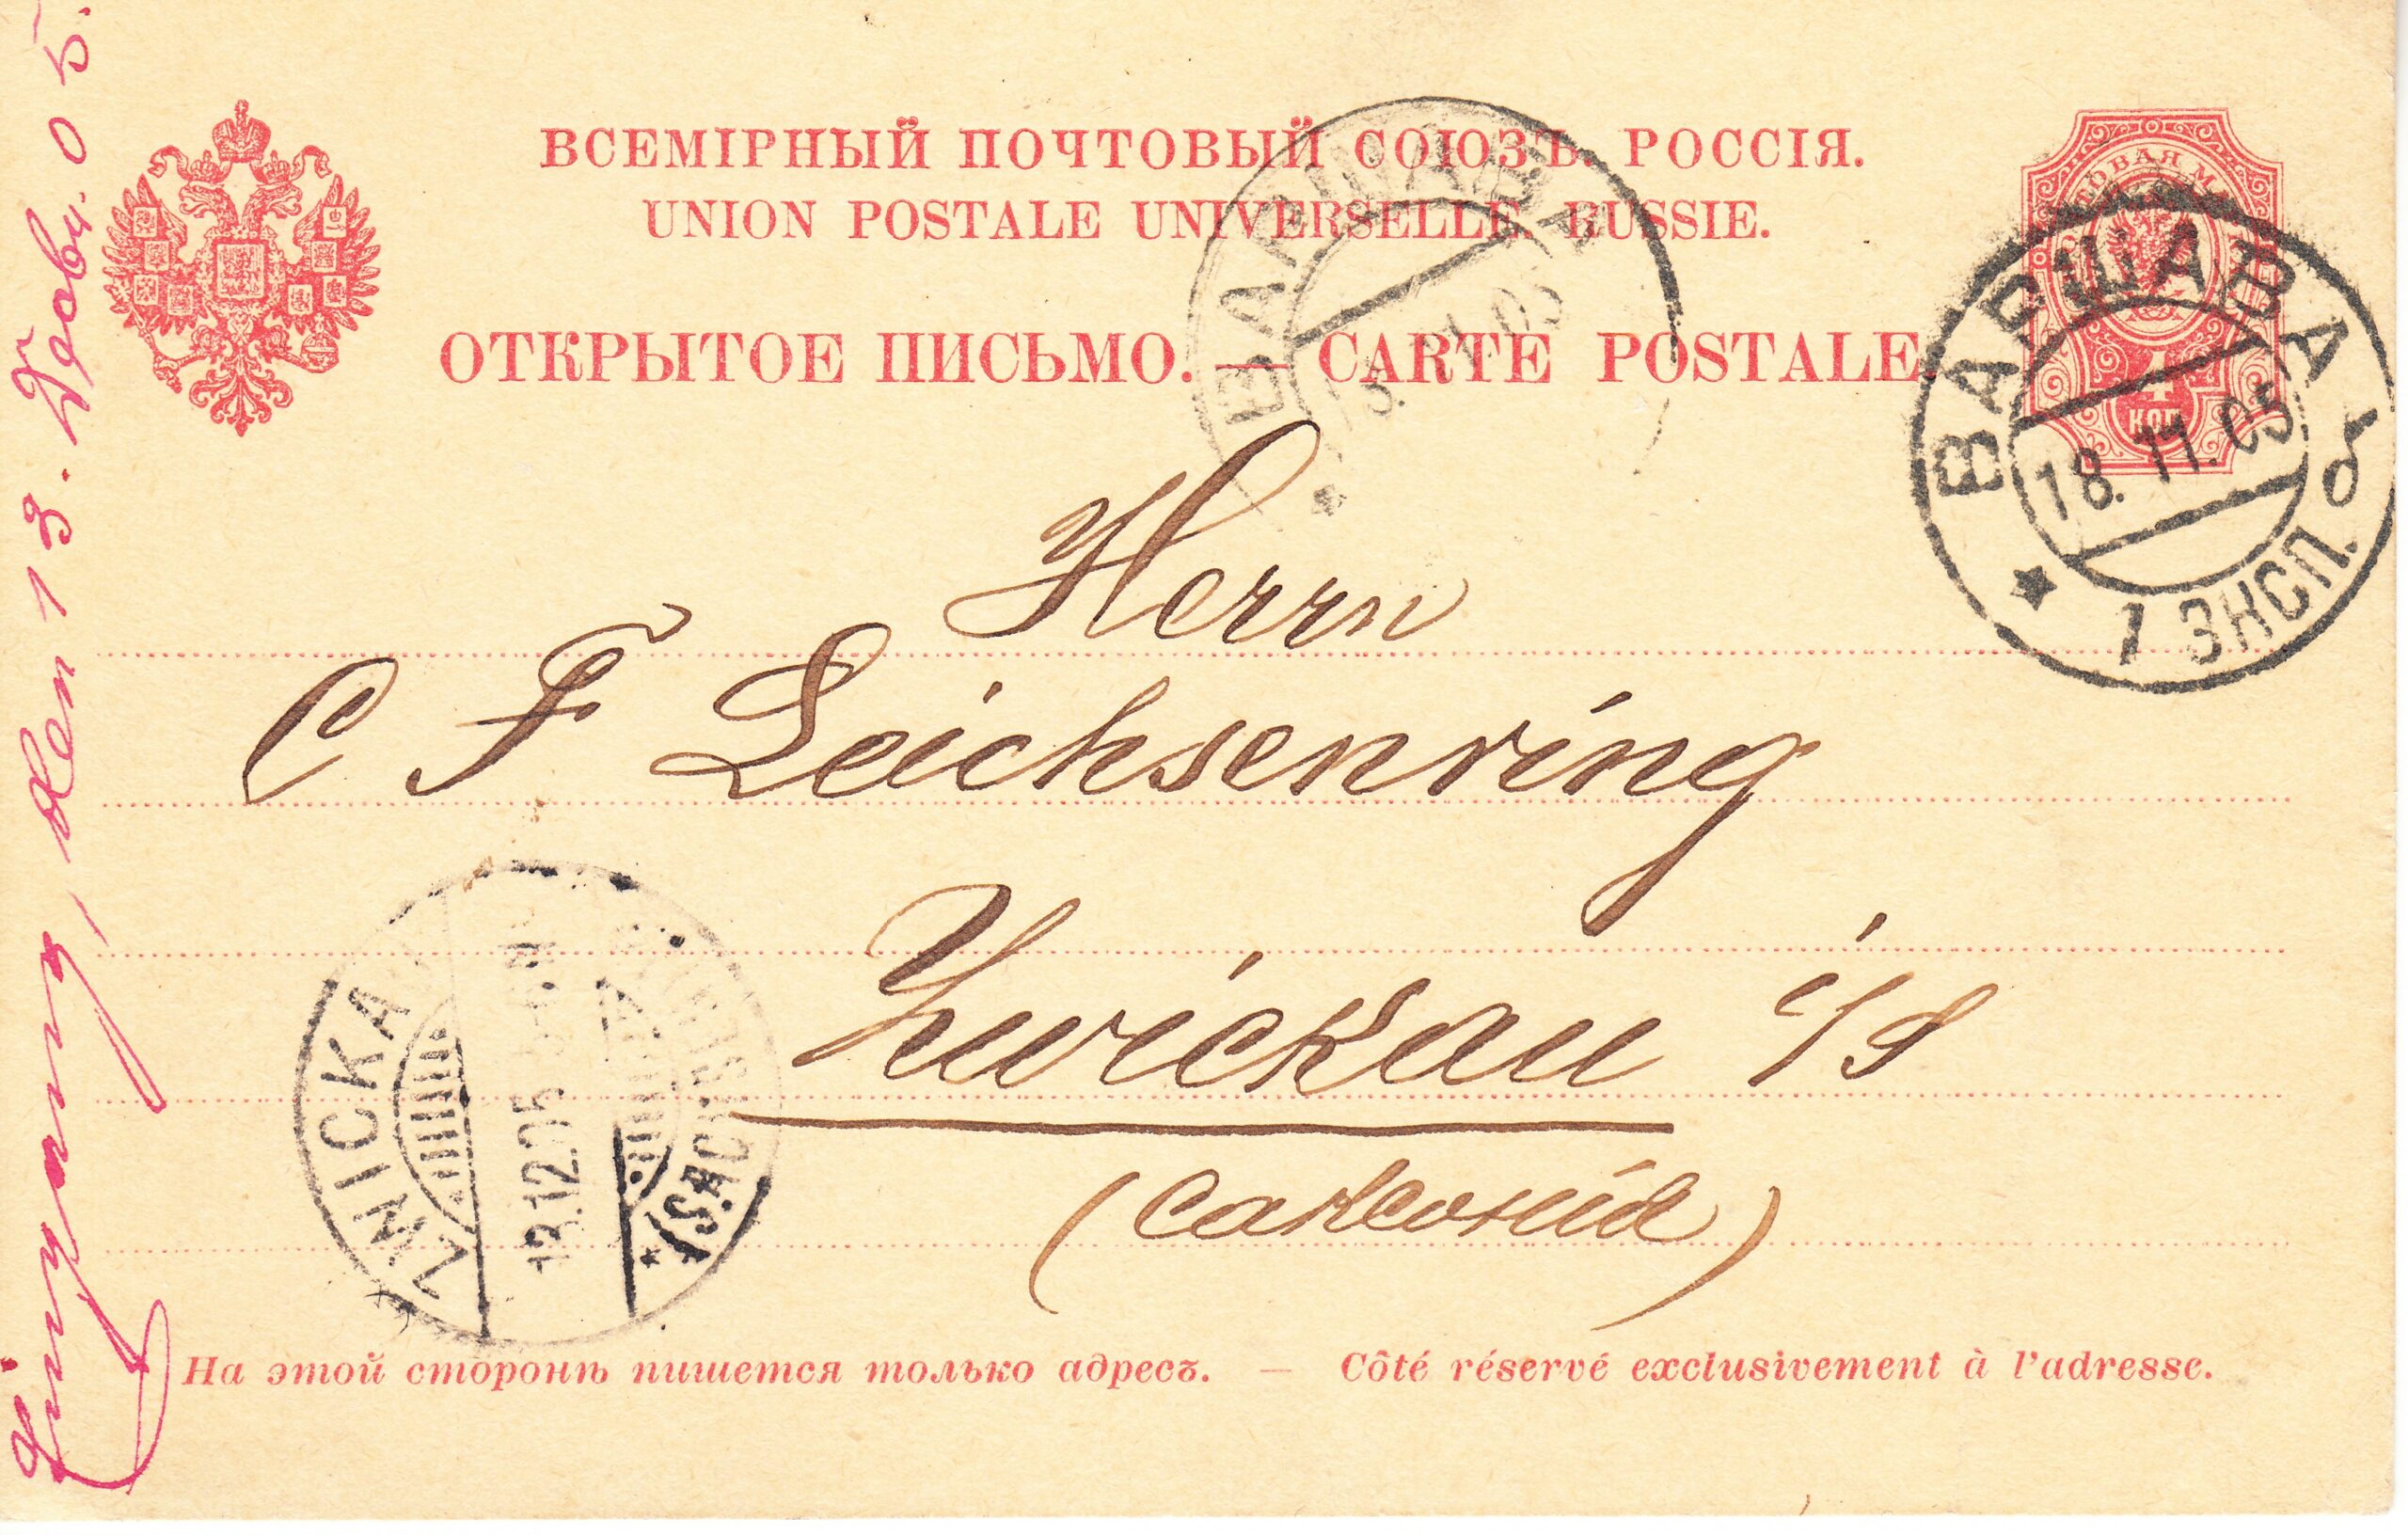 ВСЕМІРНЫЙ ПОЧТОВЫЙ СОЮЗЪ. РОССІЯ.
UNION POSTALE UNIVERSELLE. RUSSIE.
ОТКРЫТОЕ ПИСЬМО. — CARTE POSTALE.
4
КОП
ВАРШАВА
ВАРШАВА
18.11.05
1 ЭКСП.
Herrn
C F Leichsenring
Zwickau i/S
(Саксонія)
ZWICKA
13.12.05
(SACHSEN)
На этой сторонѣ пишется только адресъ. — Côté réservé exclusivement à l'adresse.
den 13. Dezbr. 05.